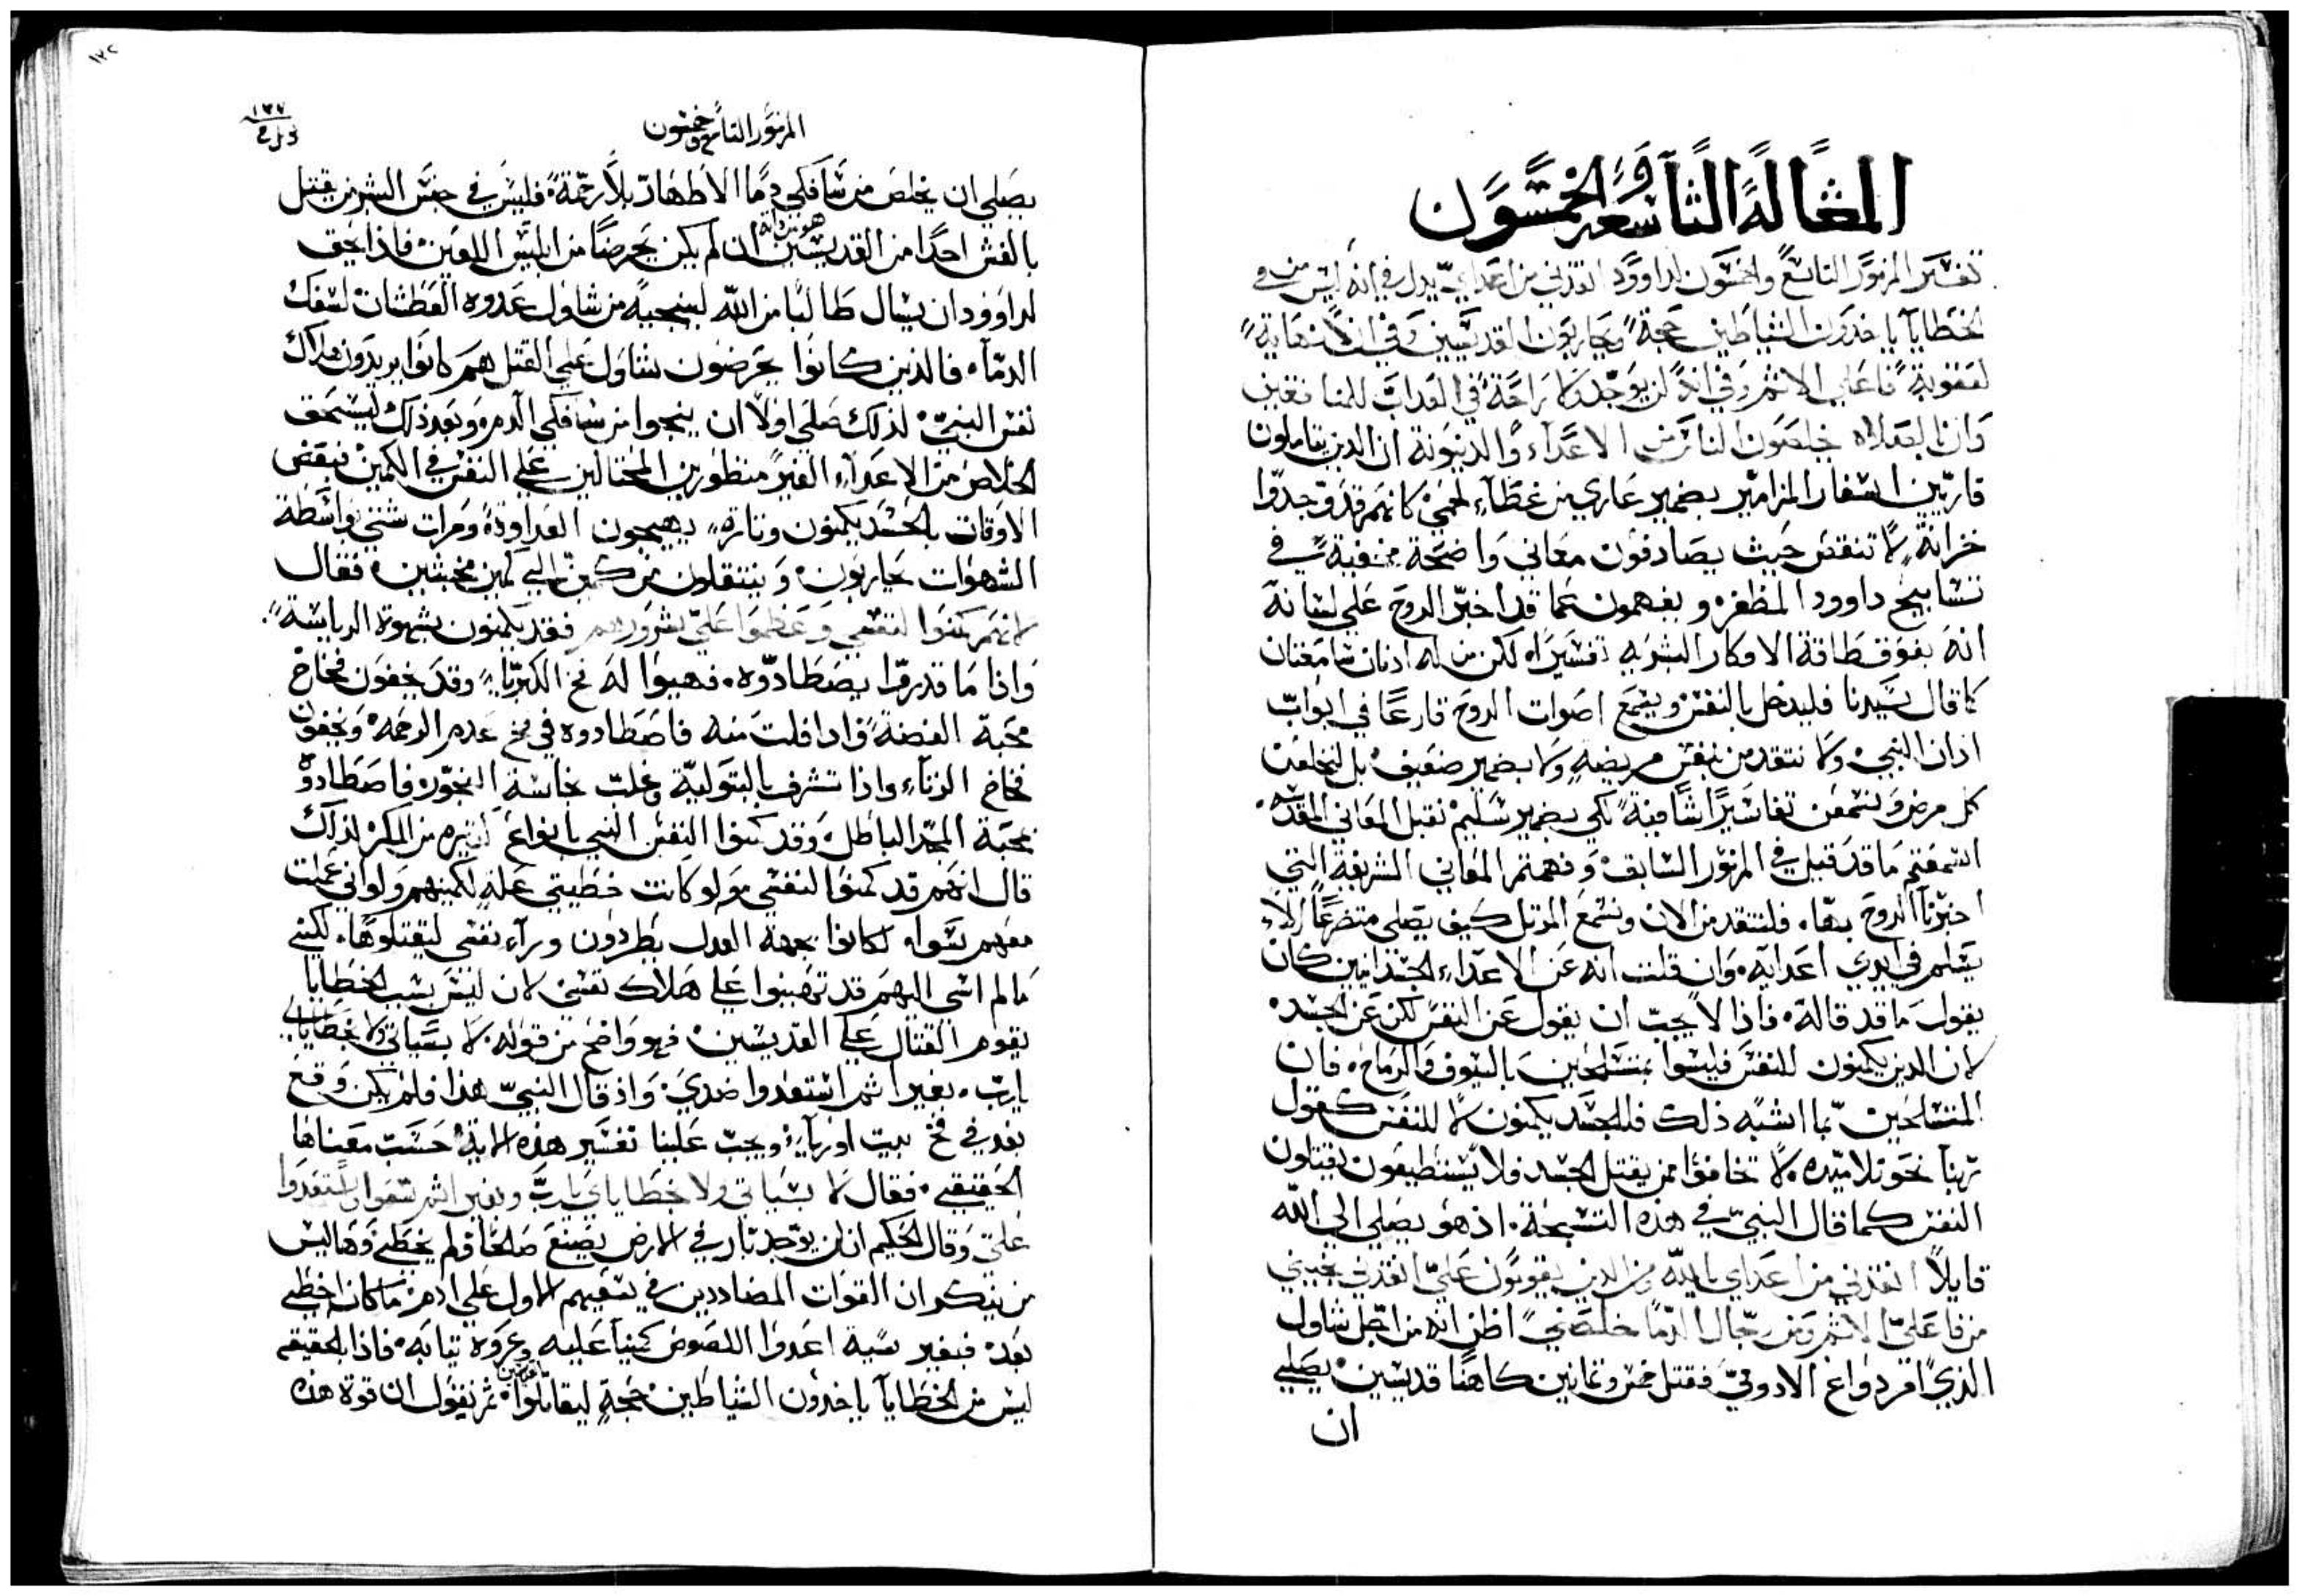 المقالة التاسعة والخمسون
تفسير المزمور التاسع والخمسون لداوود انقذني من اعداي يدل في انه ليس من
الخطايا ياخذون الشياطين حجة ويحاربون القديسين وفي ان لا نهاية
لعقوبة فاعلي الاثم وفي انه لن يوجد ولا راحة في العذاب للمنافقين
وان الصلاه يخلصون الناس من الاعداء والدينونة ان الذين يتاملون
قاريين اسفار المزامير بضمير عاري من غطاء لحمي كانهم قد وجدوا
خزانة لا تنقص حيث يصادفون معاني واضحة مخفية في
تسابيح داوود المظفره ويفهمون عما قد اخبر الروح على لسانه
انه يفوق طاقة الافكار البشريه تفسيراه لكن من له اذنان سامعتان
كما قال سيدنا فليدخل بالنفس ويسمع اصوات الروح قارعا في ابواب
اذان النبي ولا نتقدمن بنفس مريضه ولا بضمير ضعيف بل لنخلعن
كل مرض ونسمعن تفاسيرا شافية لكي بضمير سليم نقبل المعاني المقدسه
اسمعتم ما قد قيل في المزمور السابق وفهمتم المعاني الشريفة التي
اخبرنا الروح بها فلنتقدمن الان ونسمع المرتل كيف يصلي متضرعا لئلا
يسلم في ايدي اعدايه وان قلت انه عن الاعداء الجسدانيين كان
يقول ما قد قاله فاذا لا يجب ان يقول عن النفس لكن عن الجسد
لان الذين يكمنون للنفس فليسوا بمتسلحين بالسيوف والرماح فان
المتسلحين بما اشبه ذلك فللجسد يكمنون لا للنفس كقول
ربنا نحو تلاميده لا تخافوا ممن يقتل الجسد فلا يستطيعون يقتلون
النفس كما قال النبي في هذه التسبحة اذ هو يصلي الى الله
قايلا انقذني من اعداي يا الله ومن الذين يقومون علي انقذني نجيني
من فاعلي الاثم ومن رجال الدما خلصني اظن انه من اجل شاول
الذي امر دواغ الادومي فقتل خمس وثمانين كاهنا قديسين يصلي
ان
المزمور التاسع وخمسون
١٢٧
يصلي ان يخلص من سافكي دما الاطهار بلا رحمة فليس في جنس البشر من يقتل
بالغش احدا من القديسين ان لم يكن يحرضا من ابليس اللعين فاذا يحق
لداوود ان يسال طالبا من الله لينجيه من شاول عدوه العطشان لسفك
الدماء فالذين كانوا يحرضون شاول على القتل هم كانوا يريدون هلاك
نفس النبي لذلك صلى اولا ان ينجوا من سافكي الدم وبعد ذلك ليستحق
الخلاص من الاعداء الغير منظورين المحتالين على النفس في الكمين فبعض
الاوقات بالحسد يكمنون وتارة يهيجون العداوة ومرات شتى بواسطة
الشهوات يحاربون وينتقلون من كمين الى كمين مخبثين فقال
لانهم كمنوا لنفسي وعظموا علي بشرورهم فقد يكمنون بشهوة الرياسة
واذا ما قدروا يصطادوه فهيوا له فخ الكبريا وقد يخفون فخاخ
محبة الفضة واذا فلت منه فاصطادوه في فخ عدم الرحمه ويخفون
فخاخ الزناء واذا تشرف بالبتولية وغلب نجاسة الفجور فاصطادوه
بمحبة المجد الباطل وقد كمنوا النفس النبي بانواع كثيره من المكر لذلك
قال انهم قد كمنوا لنفسي ولو كانت خطيتي علة لكمينهم ولو اني عملت
معهم بسواء لكانوا بجهة العدل يطردون وراء نفسي ليقتلوها لكني
مالم اسي اليهم قد تهيوا على هلاك نفسي لان ليس بسبب الخطايا
يقوم القتال على القديسين فهو واضح من قوله لا بسياتي ولا بخطاياي
يارب بغير اثم استعدوا ضدي واذ قال النبي هذا فلم يكن وقع
بعد في فخ بيت اوريا ويجب علينا تفسير هذه الاية حسب معناها
الحقيقي فقال لا بسياتي ولا خطاياي يا رب وبغير اثم سعوا واستعدوا
علي وقال الحكيم ان لن يوجد بار في الارض يصنع صالحا ولم يخطي وهاليس
من ينكر ان القوات المضاددين في سعيهم الاول على ادم ما كان اخطي
بعد فبغير سية اعدوا اللصوص كمينا عليه وعروه ثيابه فاذا بالحقيقه
ليس من الخطايا ياخذون الشياطين حجة ليقاتلوا ثم نقول ان قوة هذه